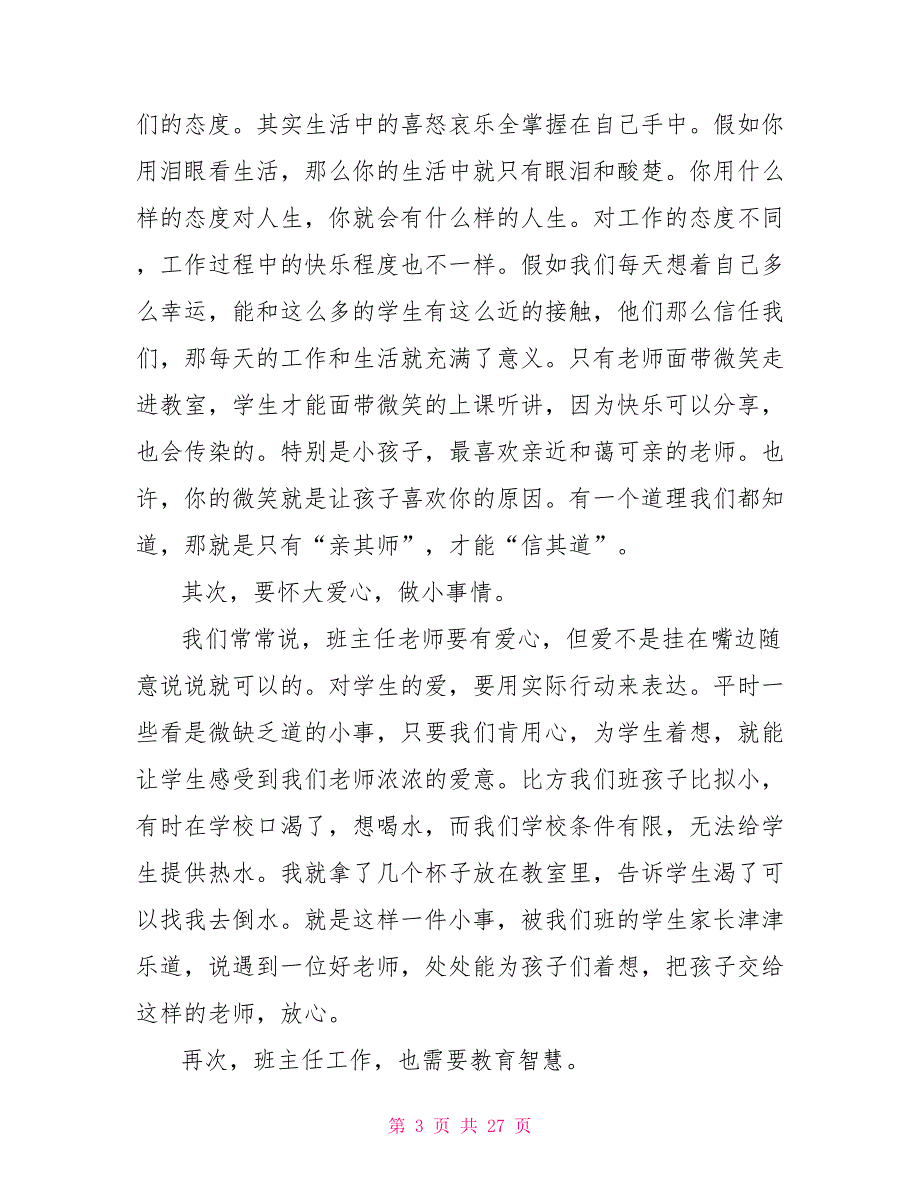 们的态度。其实生活中的喜怒哀乐全掌握在自己手中。假如你
用泪眼看生活，那么你的生活中就只有眼泪和酸楚。你用什么
样的态度对人生，你就会有什么样的人生。对工作的态度不同
，工作过程中的快乐程度也不一样。假如我们每天想着自己多
么幸运，能和这么多的学生有这么近的接触，他们那么信任我
们，那每天的工作和生活就充满了意义。只有老师面带微笑走
进教室，学生才能面带微笑的上课听讲，因为快乐可以分享，
也会传染的。特别是小孩子，最喜欢亲近和蔼可亲的老师。也
许，你的微笑就是让孩子喜欢你的原因。有一个道理我们都知
道，那就是只有“亲其师”，才能“信其道”。
其次，要怀大爱心，做小事情。
我们常常说，班主任老师要有爱心，但爱不是挂在嘴边随
意说说就可以的。对学生的爱，要用实际行动来表达。平时一
些看是微缺乏道的小事，只要我们肯用心，为学生着想，就能
让学生感受到我们老师浓浓的爱意。比方我们班孩子比拟小，
有时在学校口渴了，想喝水，而我们学校条件有限，无法给学
生提供热水。我就拿了几个杯子放在教室里，告诉学生渴了可
以找我去倒水。就是这样一件小事，被我们班的学生家长津津
乐道，说遇到一位好老师，处处能为孩子们着想，把孩子交给
这样的老师，放心。
再次，班主任工作，也需要教育智慧。
第 3 页 共 27 页